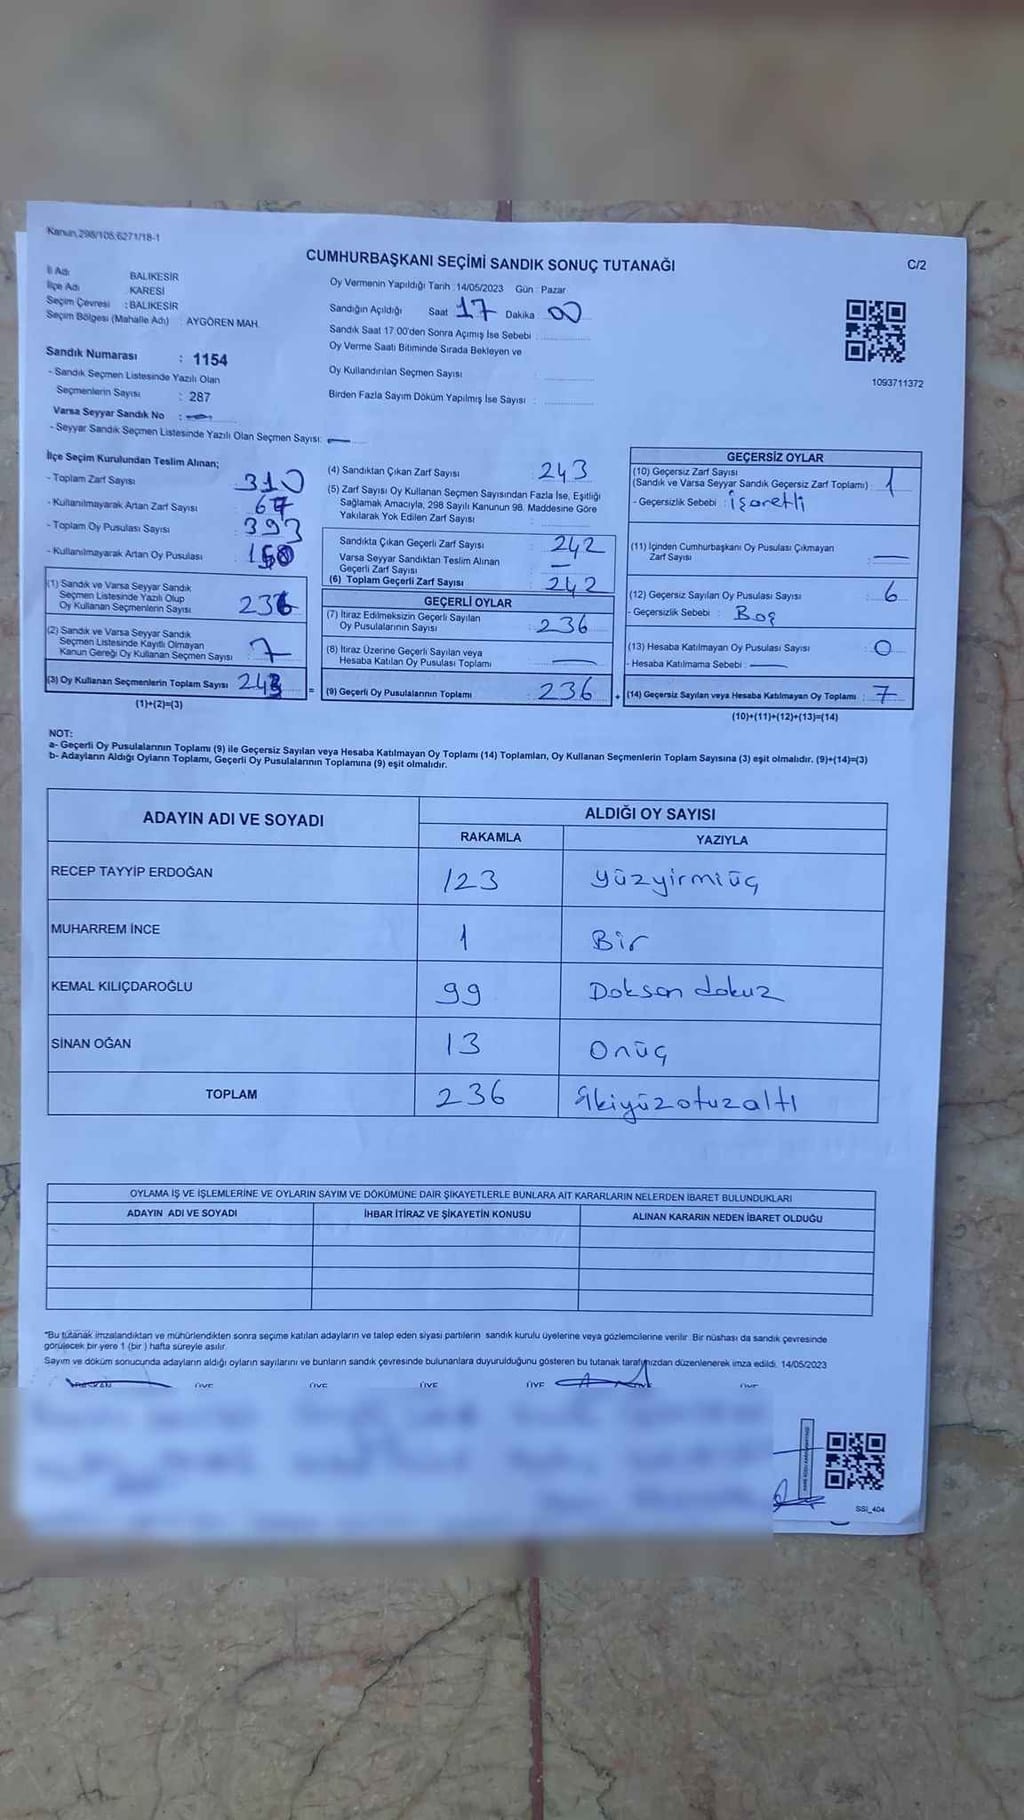 Kanun,298/105,6271/18-1
CUMHURBAŞKANI SEÇİMİ SANDIK SONUÇ TUTANAĞI
C/2
İl Adı BALIKESİR
İlçe Adı KARESİ
Seçim Çevresi : BALIKESİR
Seçim Bölgesi (Mahalle Adı) AYGÖREN MAH.
Sandık Numarası : 1154
- Sandık Seçmen Listesinde Yazılı Olan
Seçmenlerin Sayısı : 287
Varsa Seyyar Sandık No :
- Seyyar Sandık Seçmen Listesinde Yazılı Olan Seçmen Sayısı:
Oy Vermenin Yapıldığı Tarih : 14/05/2023 Gün : Pazar
Sandığın Açıldığı Saat 17 Dakika 00
Sandık Saat 17:00'den Sonra Açımış İse Sebebi :
Oy Verme Saati Bitiminde Sırada Bekleyen ve
Oy Kullandırılan Seçmen Sayısı :
Birden Fazla Sayım Döküm Yapılmış İse Sayısı :
1093711372
İlçe Seçim Kurulundan Teslim Alınan;
- Toplam Zarf Sayısı : 310
- Kullanılmayarak Artan Zarf Sayısı : 67
- Toplam Oy Pusulası Sayısı : 393
- Kullanılmayarak Artan Oy Pusulası : 150
(1) Sandık ve Varsa Seyyar Sandık
Seçmen Listesinde Yazılı Olup
Oy Kullanan Seçmenlerin Sayısı : 236
(2) Sandık ve Varsa Seyyar Sandık
Seçmen Listesinde Kayıtlı Olmayan
Kanun Gereği Oy Kullanan Seçmen Sayısı : 7
(3) Oy Kullanan Seçmenlerin Toplam Sayısı : 243
(1)+(2)=(3)
(4) Sandıktan Çıkan Zarf Sayısı : 243
(5) Zarf Sayısı Oy Kullanan Seçmen Sayısından Fazla İse, Eşitliği
Sağlamak Amacıyla, 298 Sayılı Kanunun 98. Maddesine Göre
Yakılarak Yok Edilen Zarf Sayısı :
Sandıkta Çıkan Geçerli Zarf Sayısı : 242
Varsa Seyyar Sandıktan Teslim Alınan
Geçerli Zarf Sayısı : —
(6) Toplam Geçerli Zarf Sayısı : 242
GEÇERLİ OYLAR
(7) İtiraz Edilmeksizin Geçerli Sayılan
Oy Pusulalarının Sayısı : 236
(8) İtiraz Üzerine Geçerli Sayılan veya
Hesaba Katılan Oy Pusulası Toplamı : —
= (9) Geçerli Oy Pusulalarının Toplamı : 236
GEÇERSİZ OYLAR
(10) Geçersiz Zarf Sayısı
(Sandık ve Varsa Seyyar Sandık Geçersiz Zarf Toplamı) : 1
- Geçersizlik Sebebi : işaretli
(11) İçinden Cumhurbaşkanı Oy Pusulası Çıkmayan
Zarf Sayısı : —
(12) Geçersiz Sayılan Oy Pusulası Sayısı : 6
- Geçersizlik Sebebi : Boş
(13) Hesaba Katılmayan Oy Pusulası Sayısı : 0
- Hesaba Katılmama Sebebi : —
+ (14) Geçersiz Sayılan veya Hesaba Katılmayan Oy Toplamı : 7
(10)+(11)+(12)+(13)=(14)
NOT:
a- Geçerli Oy Pusulalarının Toplamı (9) ile Geçersiz Sayılan veya Hesaba Katılmayan Oy Toplamı (14) Toplamları, Oy Kullanan Seçmenlerin Toplam Sayısına (3) eşit olmalıdır. (9)+(14)=(3)
b- Adayların Aldığı Oyların Toplamı, Geçerli Oy Pusulalarının Toplamına (9) eşit olmalıdır.
ADAYIN ADI VE SOYADI
ALDIĞI OY SAYISI
RAKAMLA YAZIYLA
RECEP TAYYİP ERDOĞAN 123 yüzyirmiüç
MUHARREM İNCE 1 Bir
KEMAL KILIÇDAROĞLU 99 Doksan dokuz
SİNAN OĞAN 13 Onüç
TOPLAM 236 ikiyüzotuzaltı
OYLAMA İŞ VE İŞLEMLERİNE VE OYLARIN SAYIM VE DÖKÜMÜNE DAİR ŞİKAYETLERLE BUNLARA AİT KARARLARIN NELERDEN İBARET BULUNDUKLARI
ADAYIN ADI VE SOYADI İHBAR İTİRAZ VE ŞİKAYETİN KONUSU ALINAN KARARIN NEDEN İBARET OLDUĞU
*Bu tutanak imzalandıktan ve mühürlendikten sonra seçime katılan adayların ve talep eden siyasi partilerin sandık kurulu üyelerine veya gözlemcilerine verilir. Bir nüshası da sandık çevresinde
görülecek bir yere 1 (bir ) hafta süreyle asılır.
Sayım ve döküm sonucunda adayların aldığı oyların sayılarını ve bunların sandık çevresinde bulunanlara duyurulduğunu gösteren bu tutanak tarafımızdan düzenlenerek imza edildi. 14/05/2023
ÜYE ÜYE ÜYE ÜYE
SSI_404